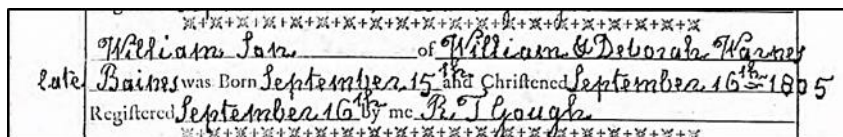 William Son of William & Deborah Warnes
late Baines was Born September 15th and Christened September 16th 1805
Registered September 16th by me R T Gough